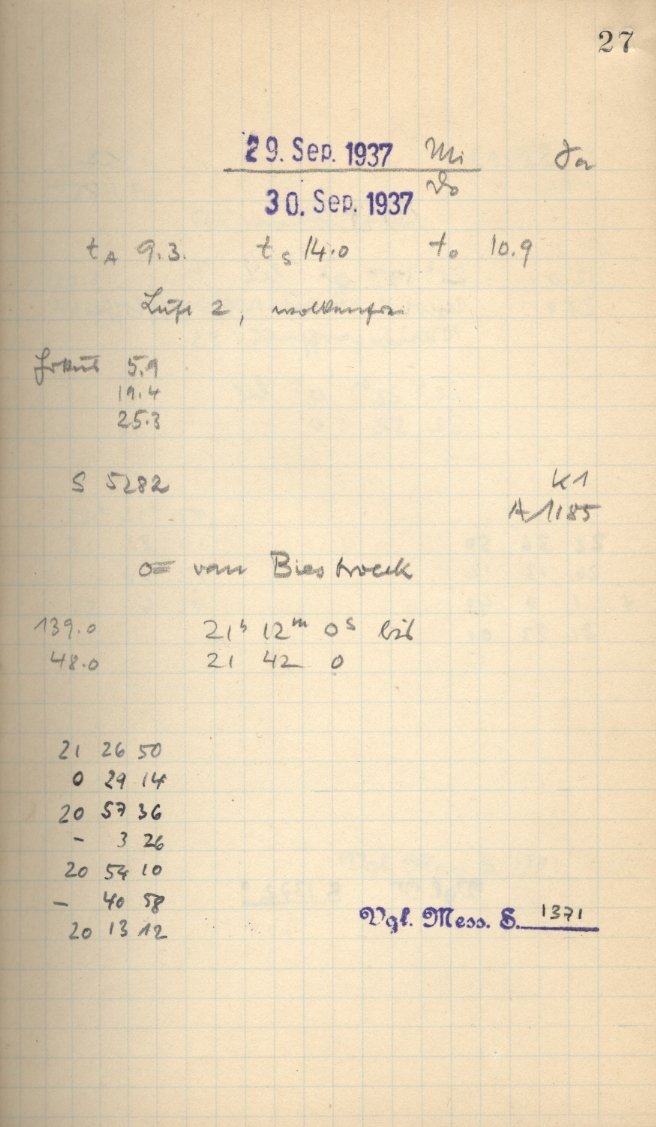 27
29. Sep. 1937 Mi
30. Sep. 1937 Do
t A 9.3. t S 14.0 t o 10.9
Luft 2, wolkenfrei
Fokus 5.9
19.4
25.3
S 5282 K1
A 1185
van Biesbroeck
139.0 21h 12m 0s bis
48.0 21 42 0
21 26 50
0 29 14
20 57 36
- 3 26
20 54 10
- 40 58
20 13 12
Vgl. Mess. S. 1371